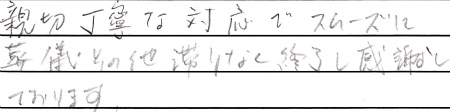 親切丁寧な対応でスムーズに
葬儀その他滞りなく終了し感謝し
ております